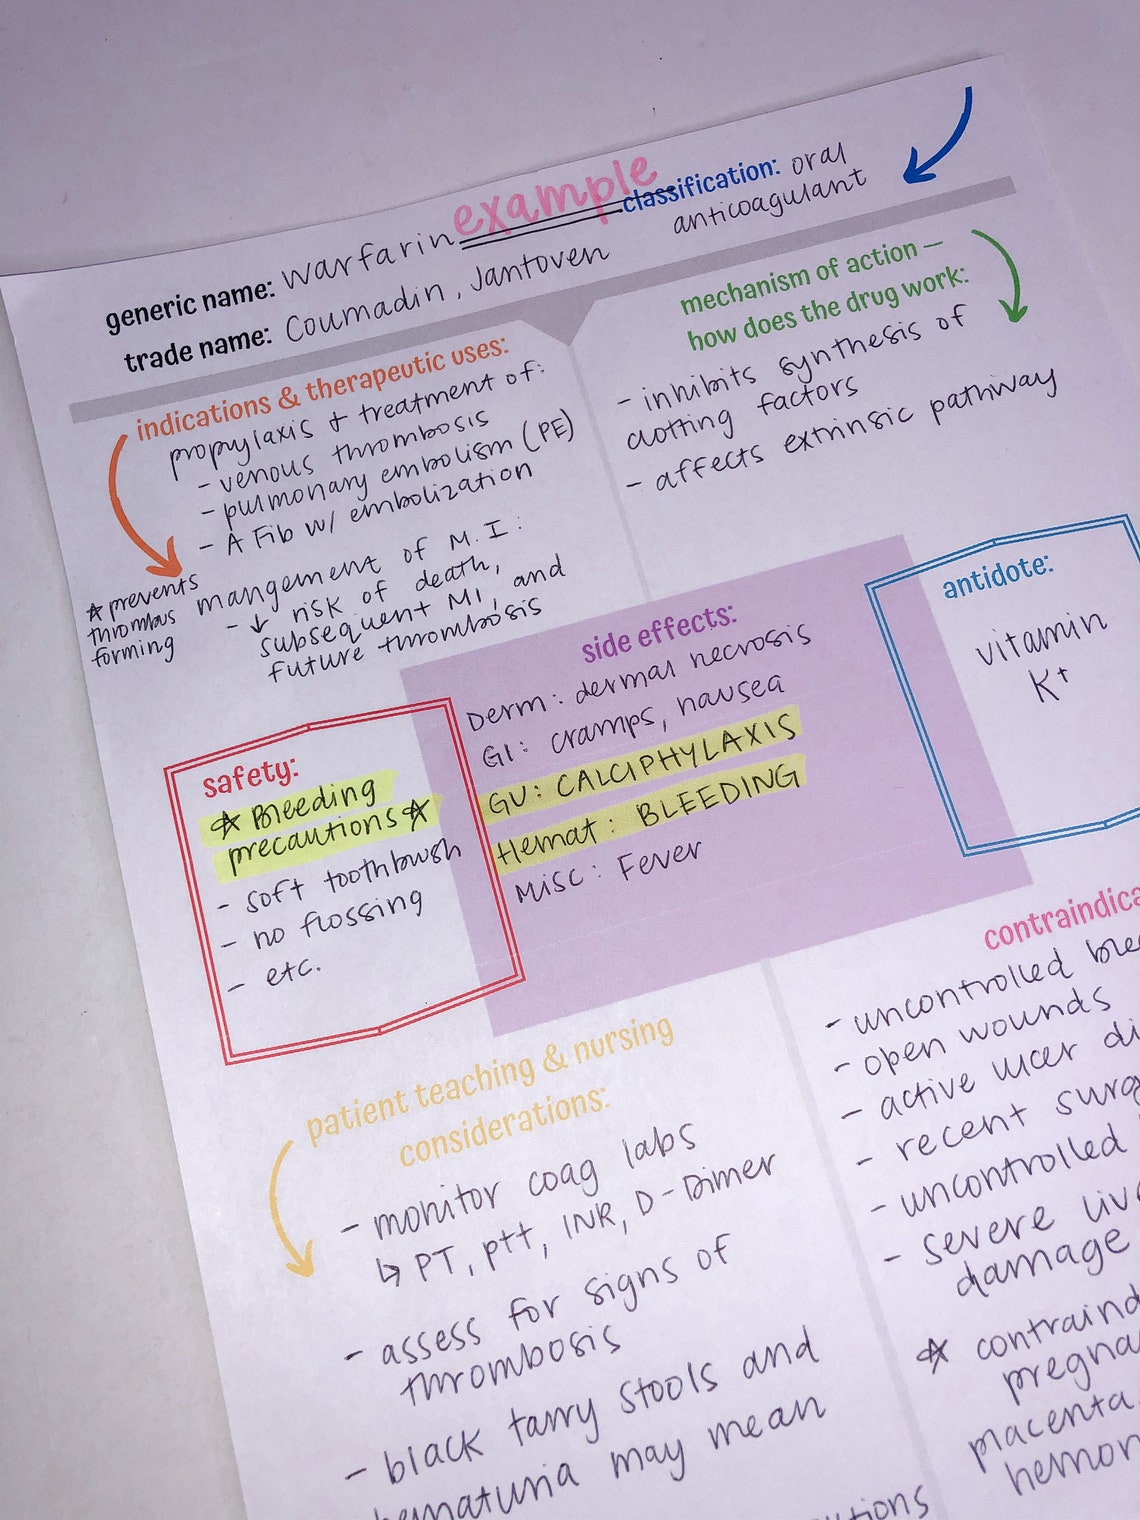 example
generic name: warfarin
classification: oral
anticoagulant
trade name: Coumadin, Jantoven
indications & therapeutic uses:
propylaxis & treatment of:
- venous thrombosis
- pulmonary embolism (PE)
- A Fib w/ embolization
mangement of M.I:
- ↓ risk of death,
subsequent MI, and
future thrombosis
☆ prevents
thrombus
forming
mechanism of action –
how does the drug work:
- inhibits synthesis of
clotting factors
- affects extrinsic pathway
side effects:
Derm: dermal necrosis
GI: cramps, nausea
GU: CALCIPHYLAXIS
Hemat: BLEEDING
Misc: Fever
antidote:
vitamin
K+
safety:
☆ Bleeding
precautions ☆
- soft toothbrush
- no flossing
- etc.
patient teaching & nursing
considerations:
- monitor coag labs
↳ PT, ptt, INR, D-Dimer
- assess for signs of
thrombosis
- black tarry stools and
hematuria may mean
contraindica
- uncontrolled blee
- open wounds
- active ulcer di
- recent surg
- uncontrolled
- severe liv
damage
☆ contraind
pregna
placenta
hemor